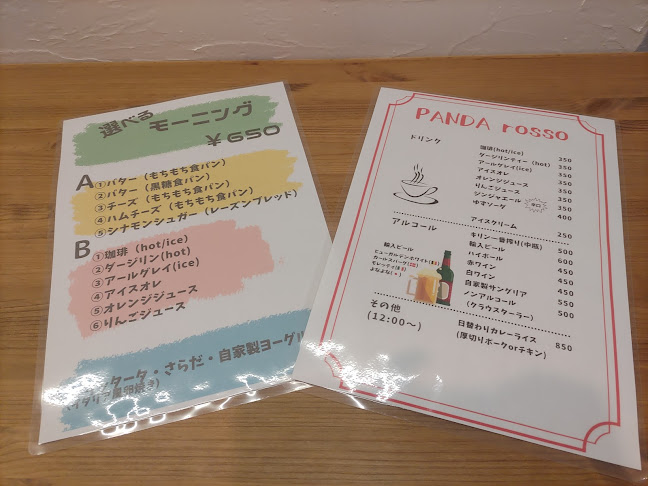 選べる
モーニング
¥650
A
①バター（もちもち食パン）
②バター（黒糖食パン）
③チーズ（もちもち食パン）
④ハムチーズ（もちもち食パン）
⑤シナモンシュガー（レーズンブレッド）
B
①珈琲（hot/ice）
②ダージリン(hot)
③アールグレイ(ice)
④アイスオレ
⑤オレンジジュース
⑥りんごジュース
タータ・さらだ・自家製ヨーグル
(イタリア風卵焼き)
PANDA rosso
ドリンク
珈琲(hot/ice) 350
ダージリンティー (hot) 350
アールグレイ(ice) 350
アイスオレ 350
オレンジジュース 350
りんごジュース 350
ジンジャエール 辛口 350
ゆずソーダ 400
アイスクリーム 250
アルコール
キリン一番搾り(中瓶) 500
輸入ビール 600
ハイボール 400
赤ワイン 450
白ワイン 450
自家製サングリア 450
ノンアルコール 500
(クラウスターラー)
輸入ビール
ヒューガルデンホワイト
カールスバーグ
モレッティ
よなよな
その他
(12:00～)
日替わりカレーライス 850
(厚切りポークorチキン)